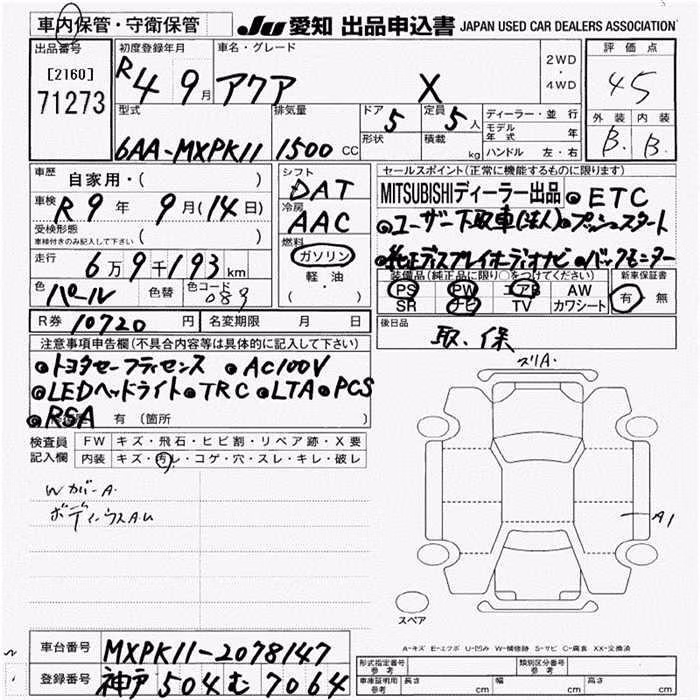 車内保管・守衛保管
JU 愛知 出品申込書 JAPAN USED CAR DEALERS ASSOCIATION
出品番号
[2160]
71273
初度登録年月
R4 9月
車名・グレード
アクア X
2WD
・
4WD
評価点
4.5
外装 内装
B. B.
型式
6AA-MXPK11
排気量
1500 CC
ドア 5
形状
定員 5人
積載 kg
ディーラー・並行
モデル年式 年
ハンドル 左・右
車歴
自家用・( )
車検
R9年 9月(14日)
受検形態
車検付きのみ記入して下さい
( )
走行
6万9千193km
色
パール
色替
色コード
089
シフト
DAT
冷房
AAC
燃料
ガソリン
・
軽・油
( )
セールスポイント(正常に機能するものに限ります)
MITSUBISHIディーラー出品 ◎ETC
◎ユーザー下取車(法人)◎プッシュスタート
◎純正ディスプレイオーディオナビ ◎バックモニター
装備品(純正品に限り○をつけてください)
PS PW エアB AW
SR ナビ TV カワシート
新車保証書
有・無
R券 10720円
名変期限 月 日
後日品
取、保
注意事項申告欄(不具合内容等は具体的に記入して下さい)
◎トヨタセーフティセンス ◎AC100V
◎LEDヘッドライト◎TRC◎LTA◎PCS
◎RSA 有(箇所 )
検査員記入欄
FW キズ・飛石・ヒビ割・リペア跡・X要
内装 キズ・汚レ・コゲ・穴・スレ・キレ・破レ
Wカバー A.
ズリA.
A1
スペア
A-キズ E-エクボ U-凹み W-補修跡 S-サビ C-腐食 XX-交換済
車台番号 MXPK11-2078147
登録番号 神戸 504 む 7064
形式指定番号
参考
類別区分番号
参考
車庫証明用
参考
長さ cm 幅 cm 高さ cm